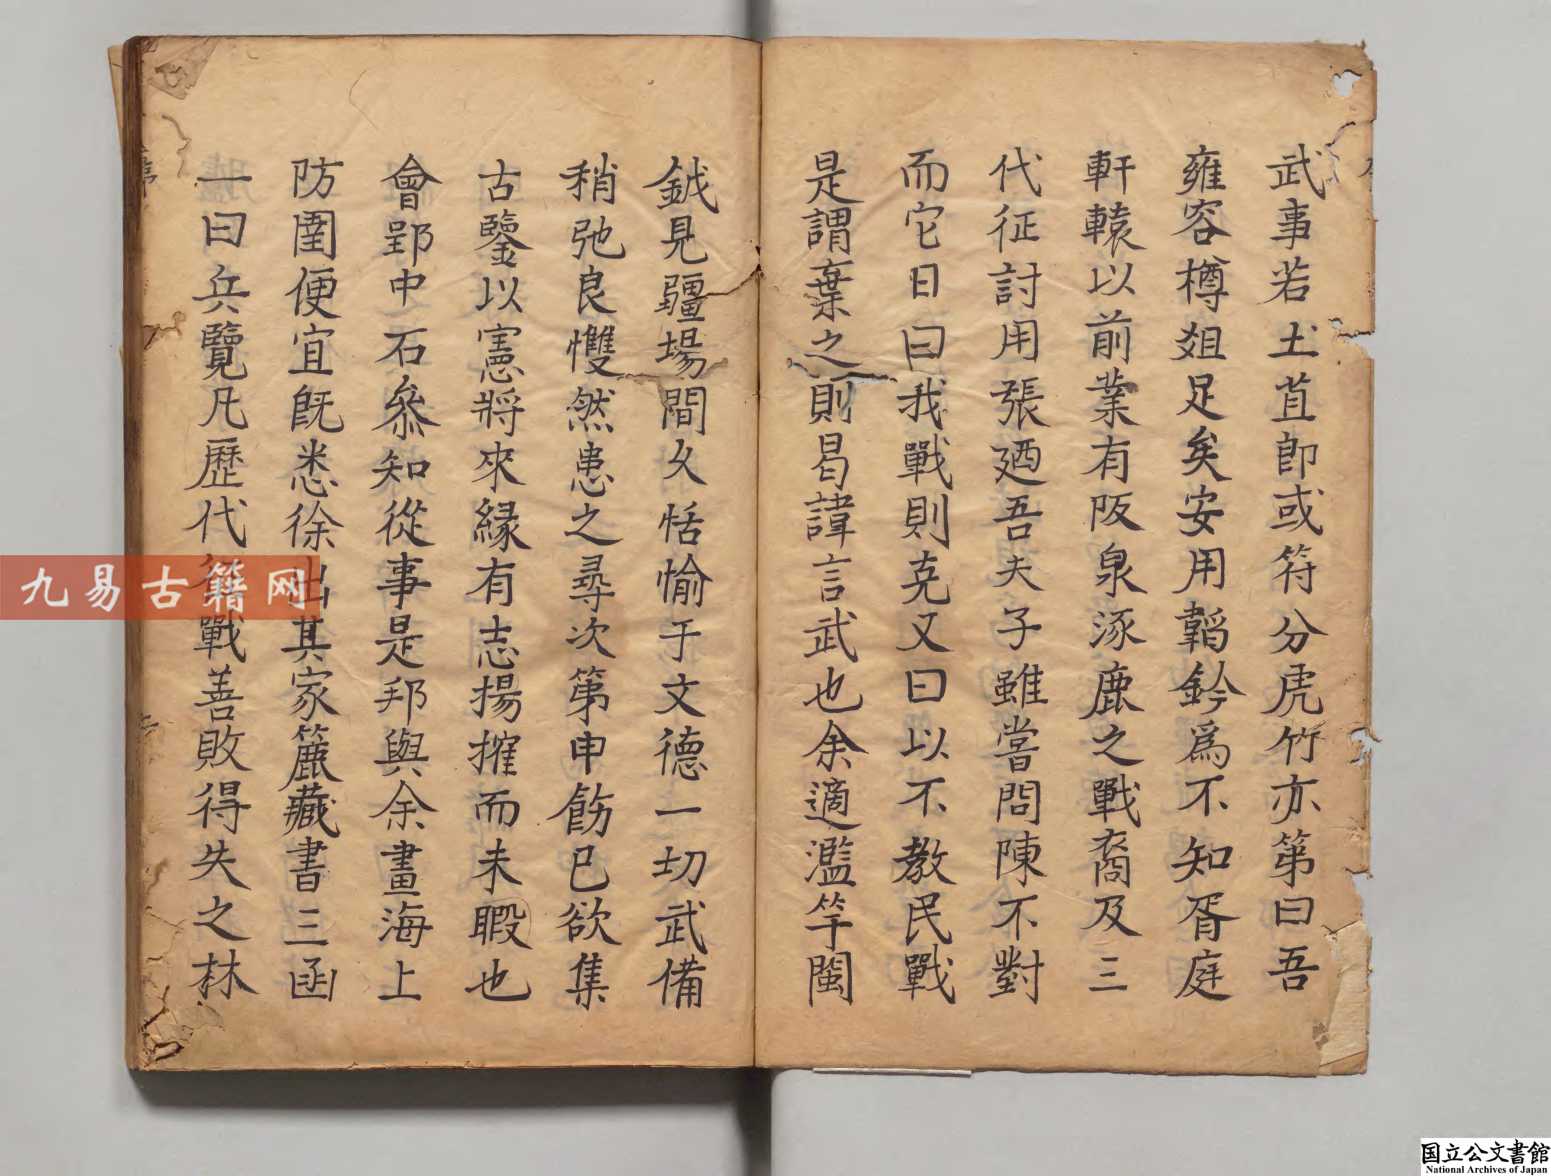 武事若土苴即或符分虎竹亦第曰吾
雍容樽俎足矣安用韜鈐爲不知胥庭
軒轅以前業有阪泉涿鹿之戰裔及三
代征討用張廼吾夫子雖嘗問陳不對
而它日曰我戰則克又曰以不教民戰
是謂棄之則曷諱言武也余適濫竽閩
鉞見疆場間久恬愉于文德一切武備
稍弛良戄然患之尋次第申飭已欲集
古鑒以憲將來緣有志揚搉而未暇也
會郢中石叅知從事是邦與余畫海上
防圉便宜旣悉徐出其家簏藏書三函
一曰兵覽凡歷代戰善敗得失之林
九易古籍网
国立公文書館
National Archives of Japan